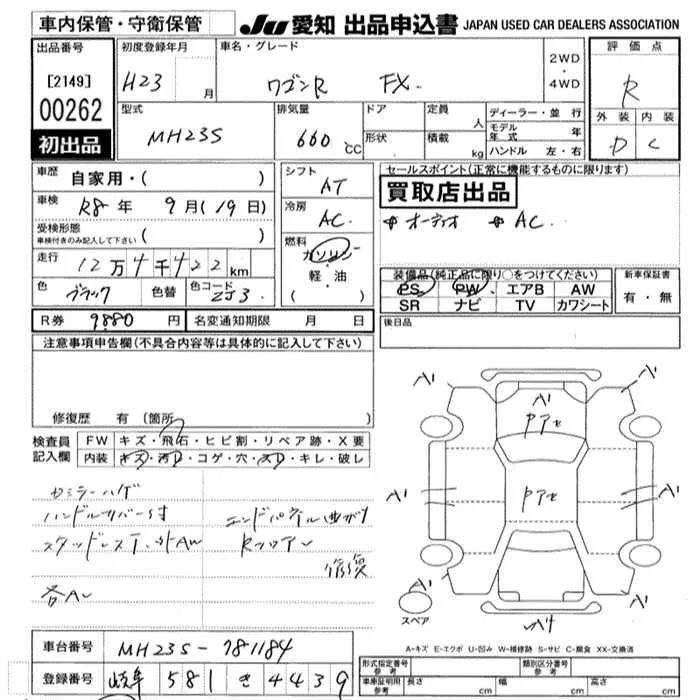 車内保管・守衛保管
JU 愛知 出品申込書 JAPAN USED CAR DEALERS ASSOCIATION
出品番号
[2149]
00262
初出品
初度登録年月
H23 月
車名・グレード
ワゴンR FX
2WD
・
4WD
評価点
R
外装 内装
D C
型式
MH23S
排気量
660 CC
ドア
形状
定員 人
積載 kg
ディーラー・並行
モデル年式 年
ハンドル 左・右
車歴 自家用・( )
車検 R8年 9月(19日)
受検形態
車検付きのみ記入して下さい ( )
走行 12万4千422km
色 ブラック 色替 色コード ZJ3
シフト
AT
冷房
AC
燃料
ガソリン
軽・油
( )
セールスポイント(正常に機能するものに限ります)
買取店出品
オーディオ AC
装備品(純正品に限り○をつけてください)
PS PW エアB AW
SR ナビ TV カワシート
新車保証書
有・無
R券 9880円 名変通知期限 月 日
後日品
注意事項申告欄(不具合内容等は具体的に記入して下さい)
修復歴 有(箇所 )
検査員記入欄
FW キズ・飛石・ヒビ割・リペア跡・X要
内装 キズ・汚レ・コゲ・穴・スレ・キレ・破レ
ハンドルカバー付
エンドパネル曲がり
スタッドレス
Rフロア
修復
各A
A1 A1
A1
Pアセ
A1 Pアセ A1
スペア
A-キズ E-エクボ U-凹み W-補修跡 S-サビ C-腐食 XX-交換済
車台番号 MH23S-781184
登録番号 岐阜 581 き 4439
形式指定番号
参考
類別区分番号
参考
車庫証明用
参考
長さ cm 幅 cm 高さ cm